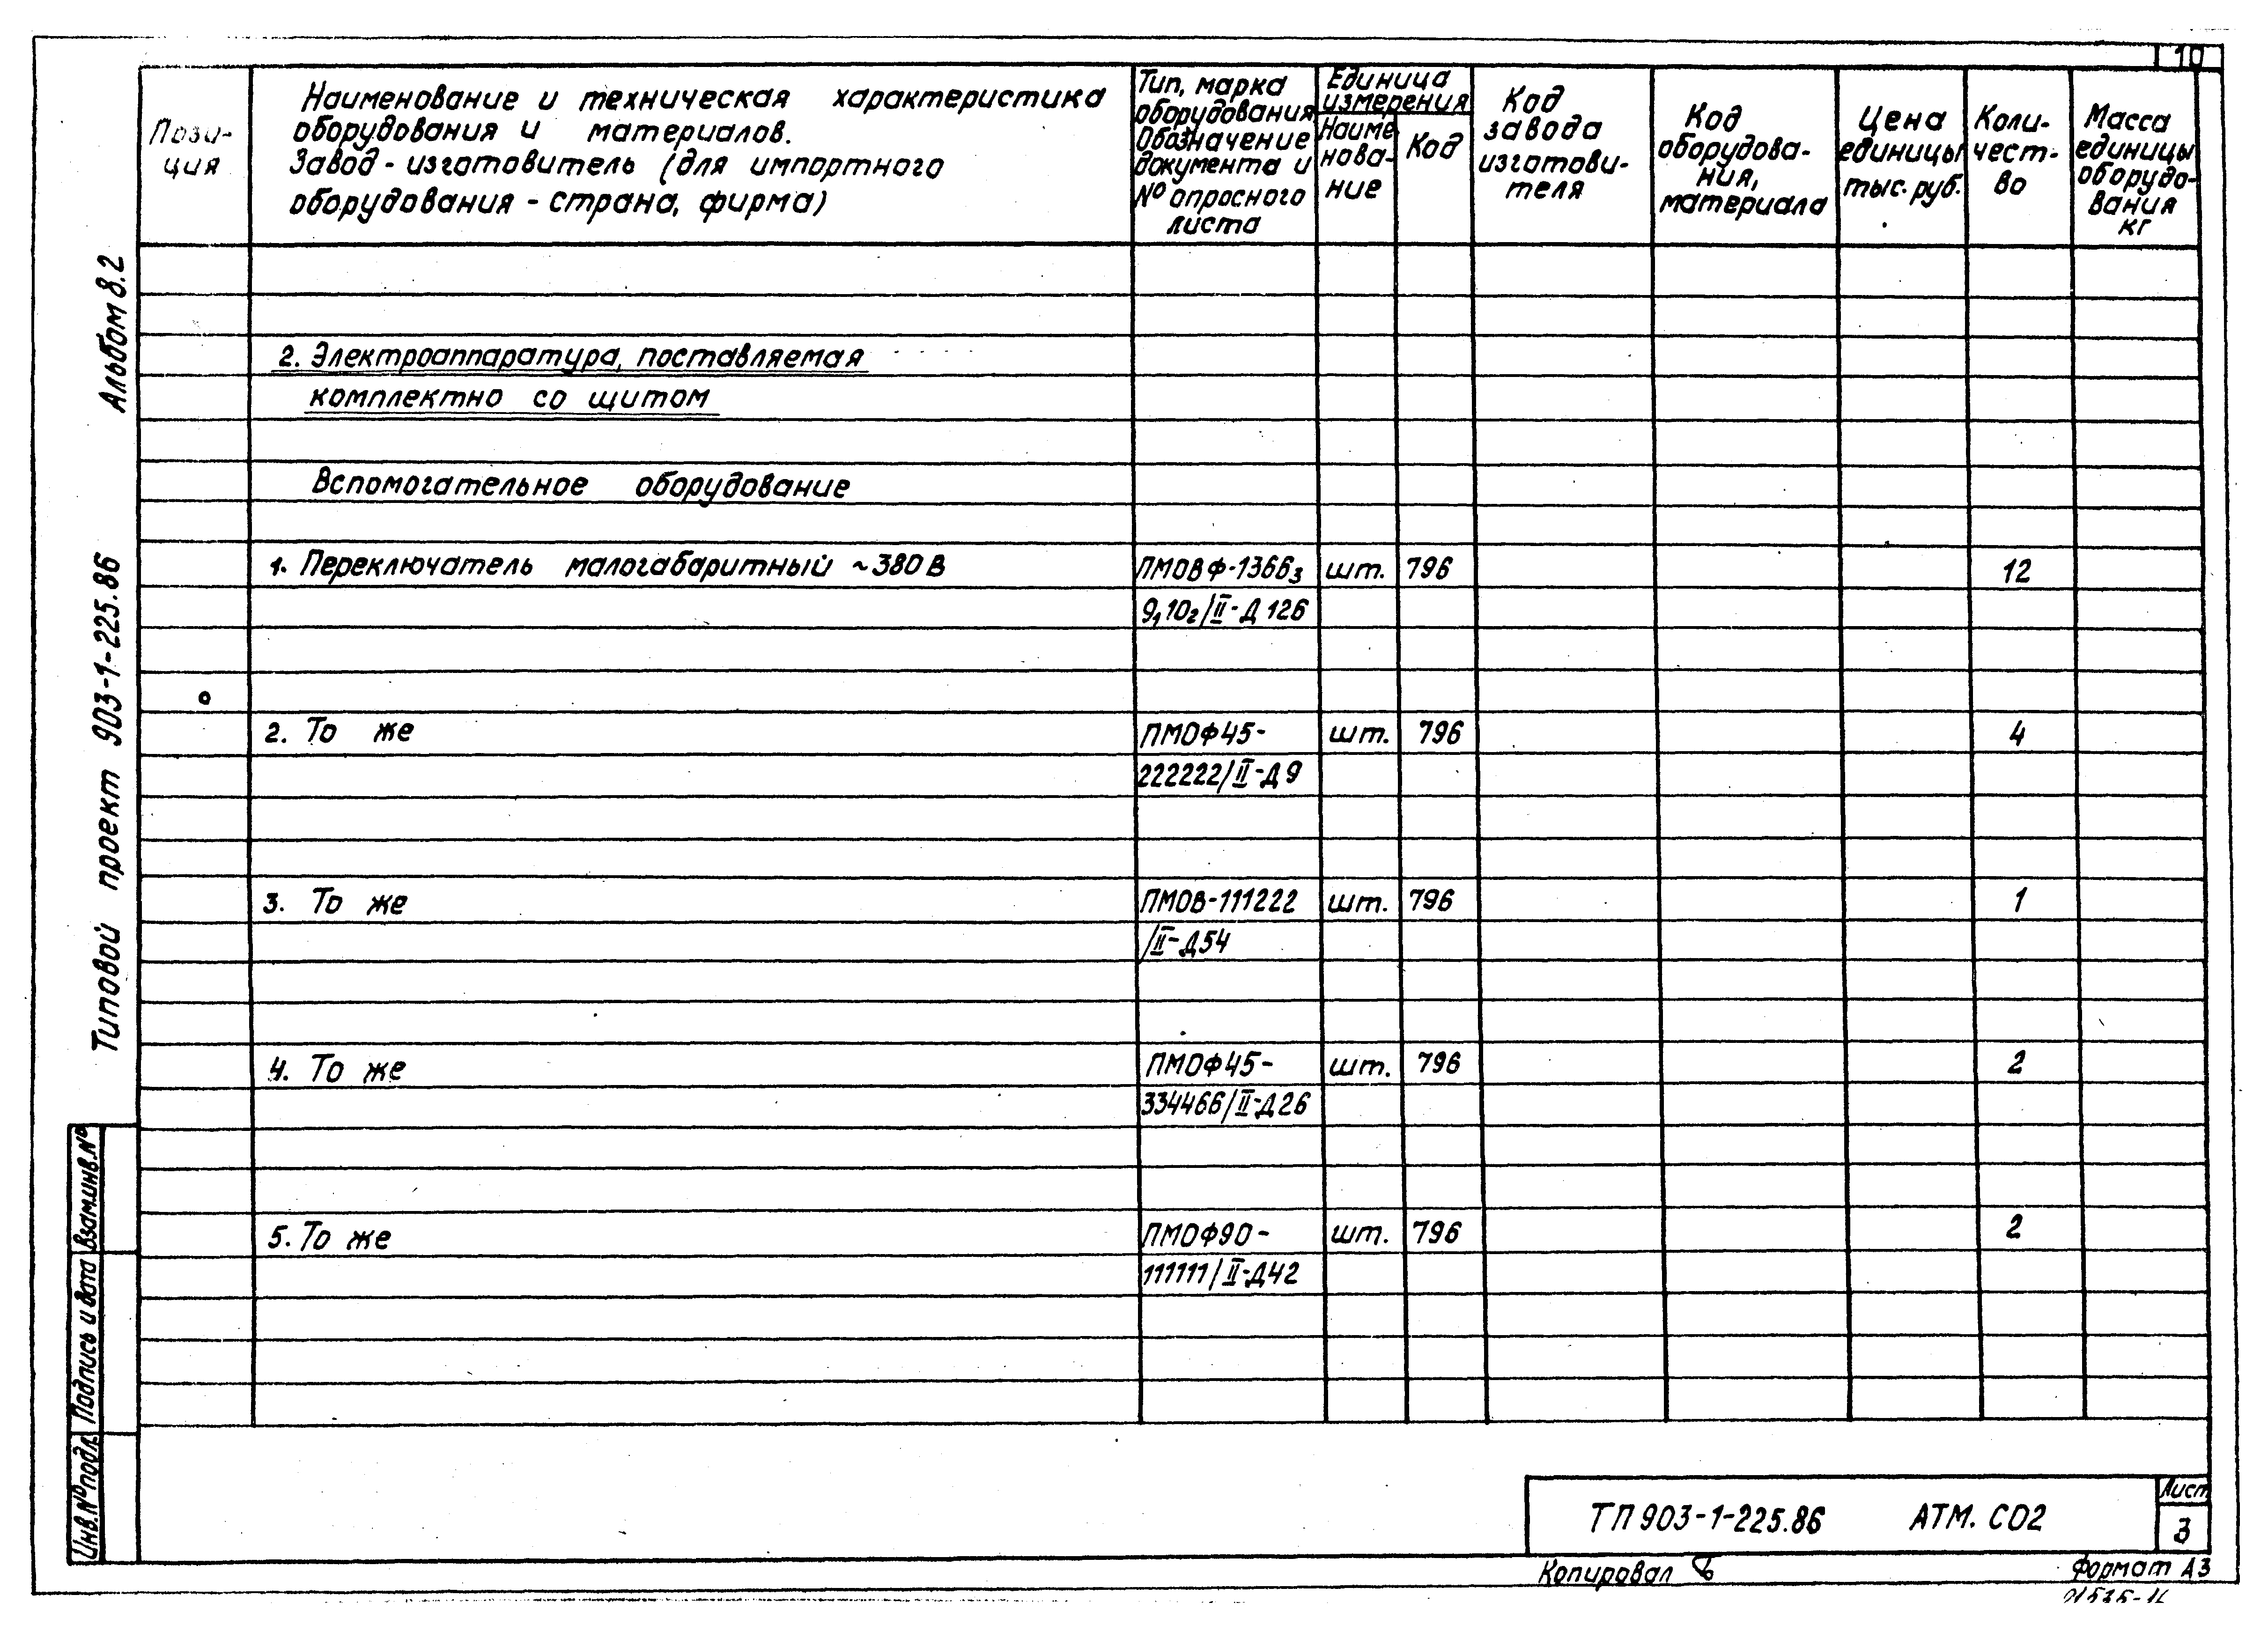 10
Пози-
ция
Наименование и техническая характеристика
оборудования и материалов.
Завод-изготовитель (для импортного
оборудования - страна, фирма)
Тип, марка
оборудования
Обозначение
документа и
№ опросного
листа
Единица
измерения
Наиме
нова-
ние
Код
Код
завода
изготови-
теля
Код
оборудова-
ния,
материала
Цена
единицы
тыс. руб.
Коли-
чест-
во
Масса
единицы
оборудо-
вания
кг
Альбом 8.2
Типовой проект 903-1-225.86
2. Электроаппаратура, поставляемая
комплектно со щитом
Вспомогательное оборудование
1. Переключатель малогабаритный ~380 В ПМОВФ-1366₃ шт. 796 12
9,10₂/II-Д126
2. То же ПМОФ45- шт. 796 4
222222/II-Д9
3. То же ПМОВ-111222 шт. 796 1
/II-Д54
4. То же ПМОФ45- шт. 796 2
334466/II-Д26
5. То же ПМОФ90- шт. 796 2
111111/II-Д42
Взам.инв.№
Подпись и дата
Инв.№подл.
ТП 903-1-225.86 АТМ. СО2
Лист
3
Копировал
Формат А3